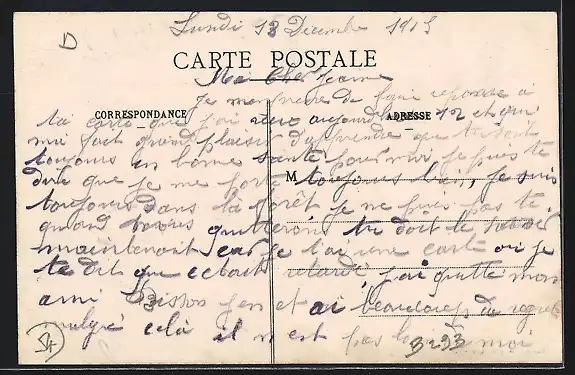 D
Lundi 13 Decembre 1915
CARTE POSTALE
Ma Cher Jeanne
Je m'empresse de faire reponse à
CORRESPONDANCE
ADRESSE
ta carte que j'ai aujourd 12 et qui
me fait grand plaisir d'apprendre que tu soit
toujours en bonne santé pour moi je puis te
dire que je me porte toujours bien, je suis
M
toujours dans la forêt je ne puis pas te
quand nous quitterons tu doit le savoir
maintenant car je t'ai une carte où je
te dit que retardé, j'ai quitté mon
ami Poisson j'en et ai beaucoup de regret
malgré celà il n est pas loin de moi
3293